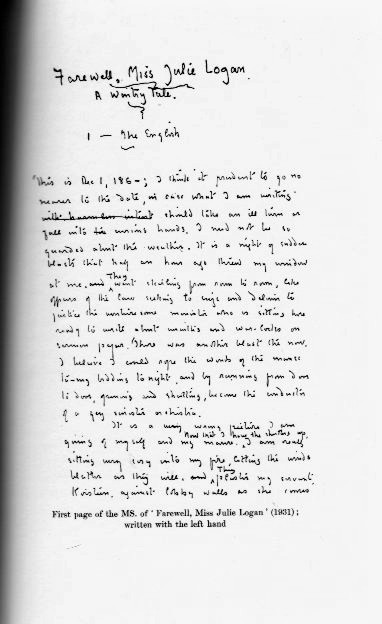 Farewell, Miss Julie Logan.
A Wintry Tale.
I — The English
"This is Dec 1, 186–; I think it prudent to go no
nearer to the date, in case what I am writing
should take an ill turn or
fall into curious hands. I need not be so
guarded about the weather. It is a night of sudden
blasts that half an hour ago threw my window
at me, and They went skirling from room to room, like
officers of the law seeking to seize and deliver to
justice the venturesome minister who is sitting here
ready to write about wraiths and war-locks on
sermon paper. There was another blast the now.
I believe I could rope the winds of the manse
to my bidding to-night, and by running from door
to door, opening and shutting, become the conductor
of a gey sinister orchestra.
It is a very wrong picture I am
giving of myself and my manse. Now that I have the shutters up, I am really
sitting very cosy into my fire letting the winds
blatter as they will, and They plaster my servant,
Christine, against lobby walls as she comes
First page of the MS. of ' Farewell, Miss Julie Logan ' (1931) ;
written with the left hand